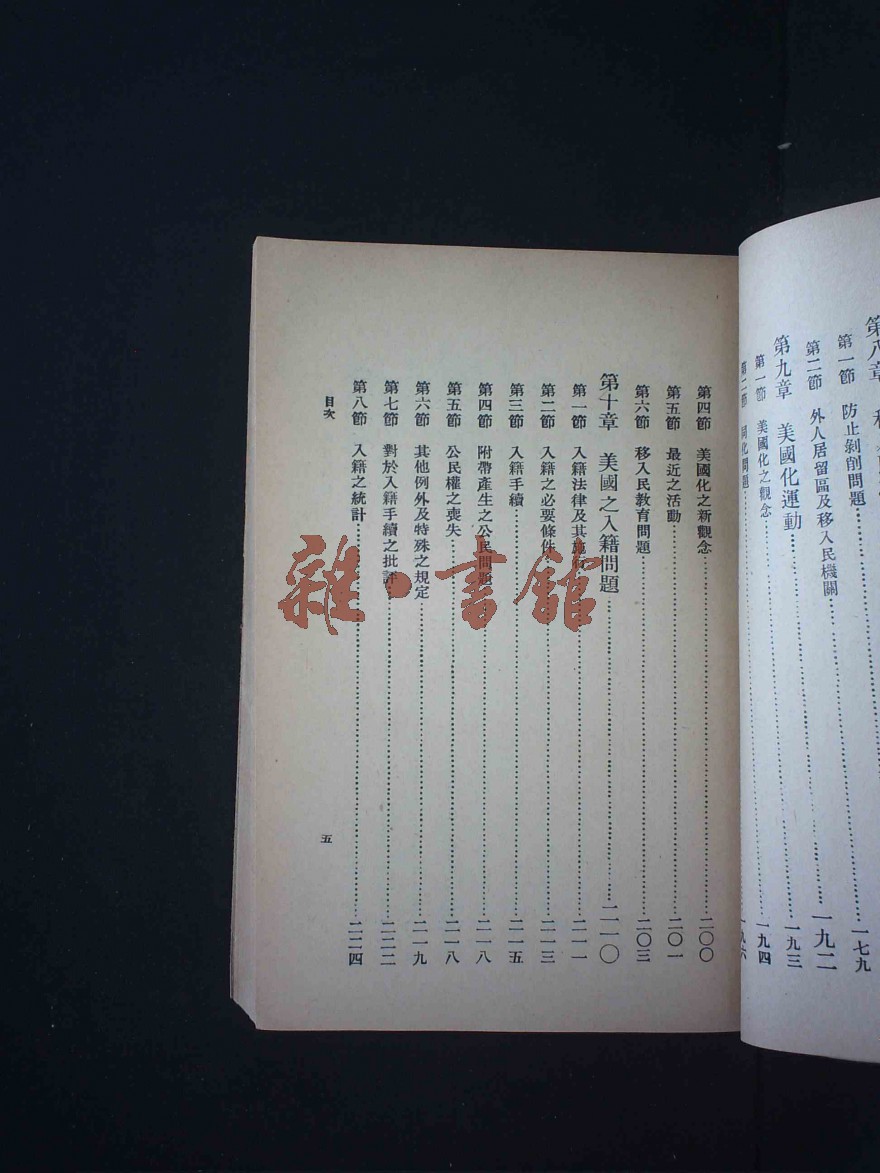 第八章
第一節　防止剝削問題……一七九
第二節　外人居留區及移入民機關……一九二
第九章　美國化運動……一九三
第一節　美國化之觀念……一九四
第二節　同化問題……一九六
第四節　美國化之新觀念……二〇〇
第五節　最近之活動……二〇一
第六節　移入民教育問題……二〇三
第十章　美國之入籍問題……二一〇
第一節　入籍法律及其施行……二一一
第二節　入籍之必要條件……二一三
第三節　入籍手續……二一五
第四節　附帶產生之公民問題……二一八
第五節　公民權之喪失……二一八
第六節　其他例外及特殊之規定……二一九
第七節　對於入籍手續之批評……二二二
第八節　入籍之統計……二二四
目次
五
雜·書館